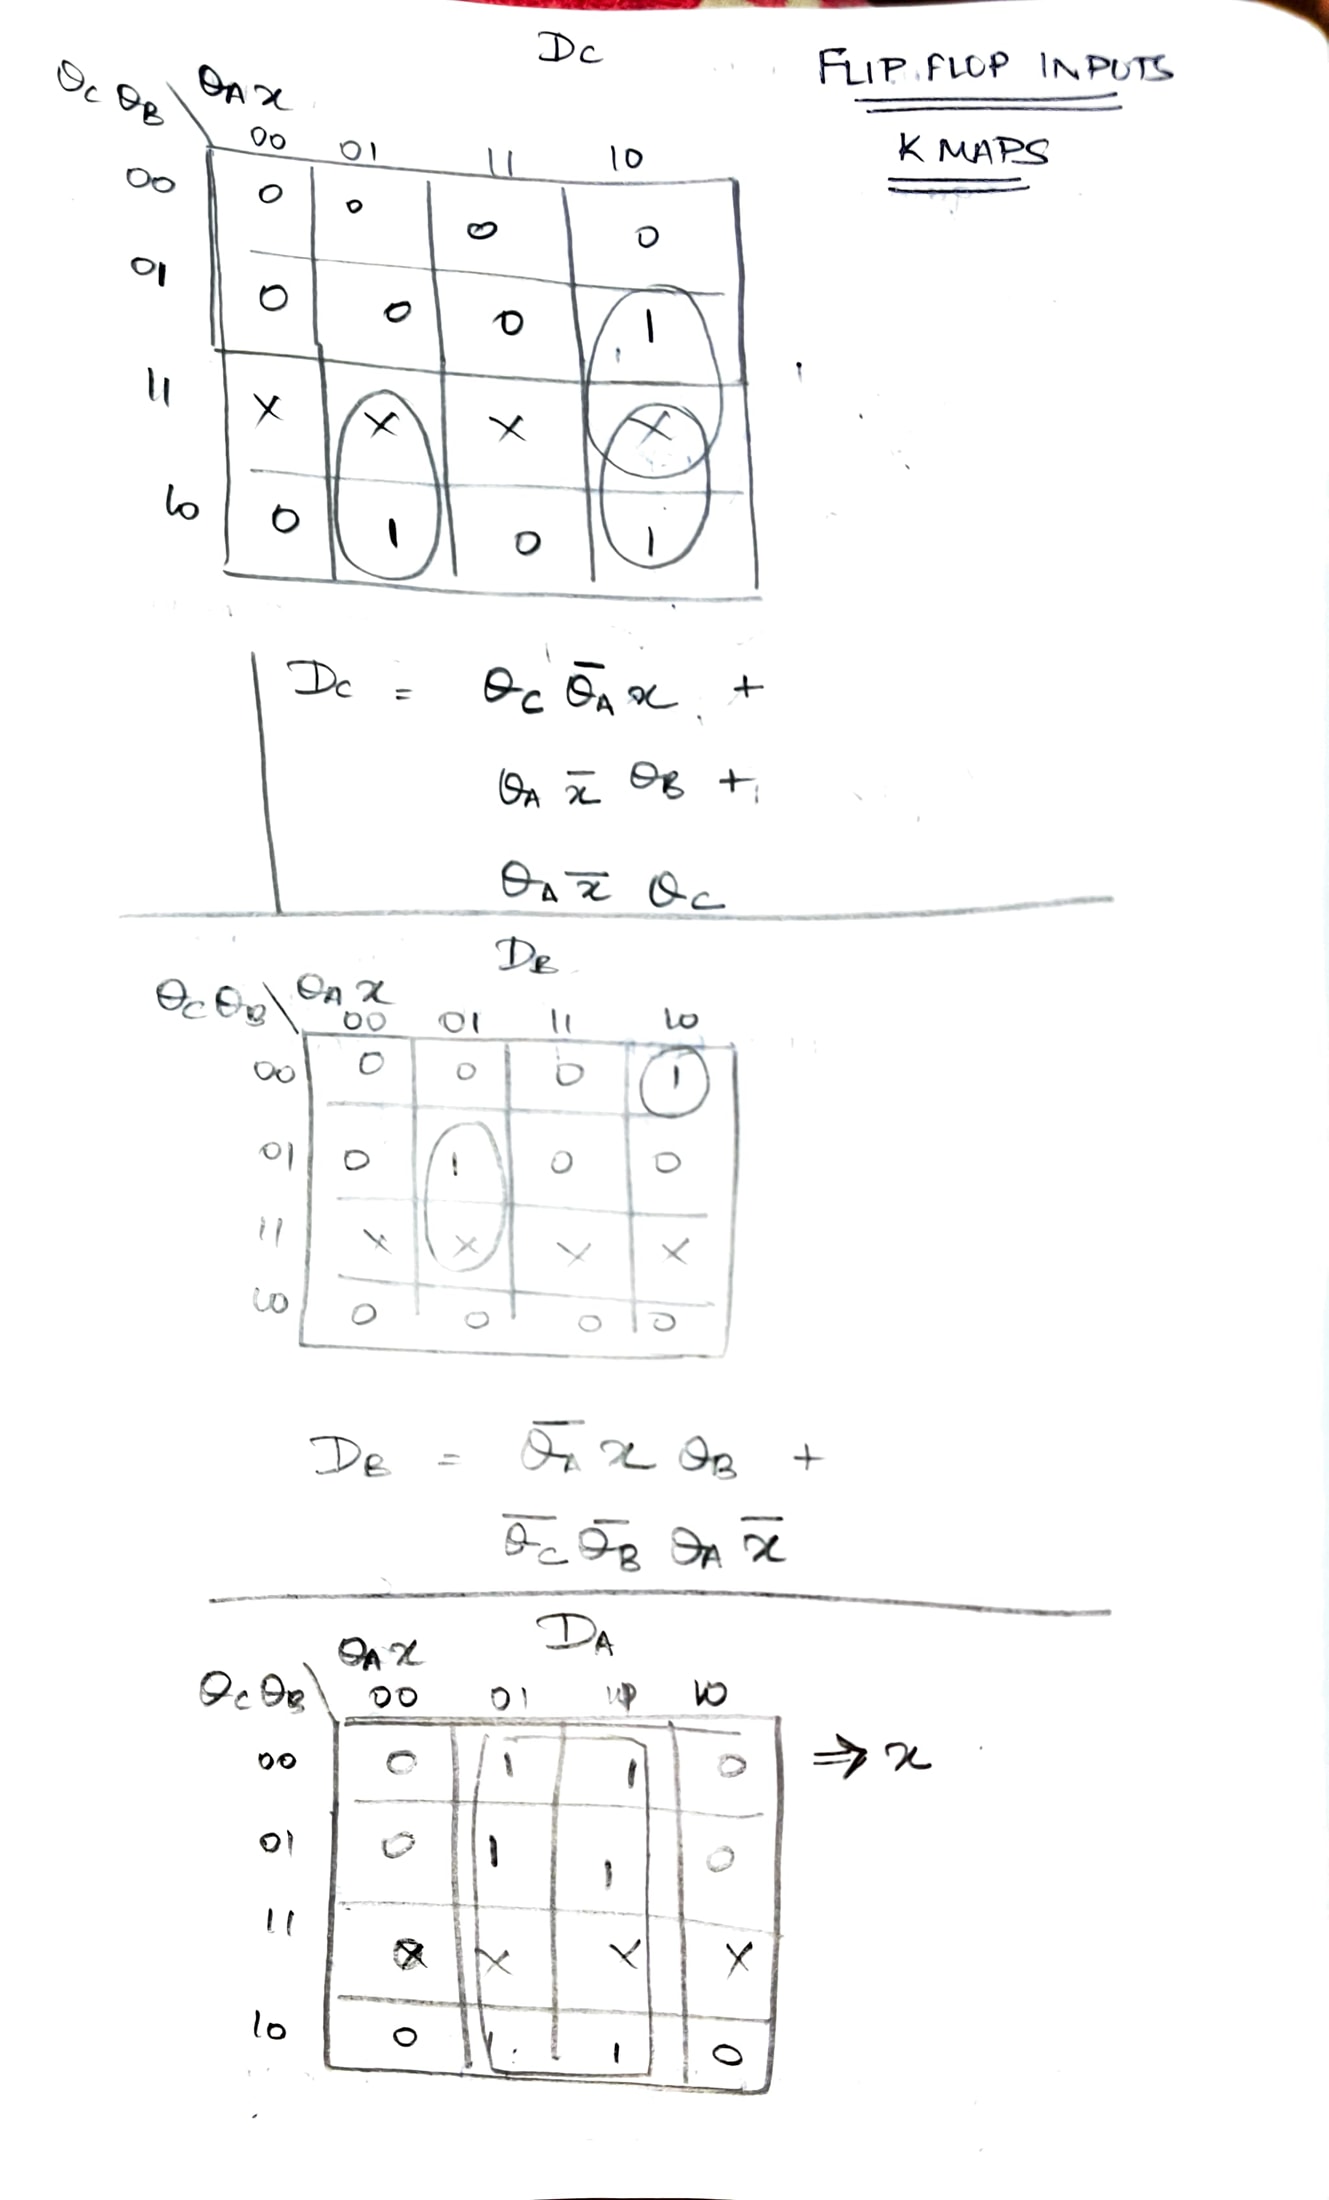 DC
FLIP FLOP INPUTS
K MAPS
QC QB \ QA x
00 01 11 10
00 0 0 0 0
01 0 0 0 1
11 X X X X
10 0 1 0 1
DC = QC Q̅A x +
QA x̅ QB +
QA x̅ QC
DB
QC QB \ QA x
00 01 11 10
00 0 0 0 1
01 0 1 0 0
11 X X X X
10 0 0 0 0
DB = Q̅A x QB +
Q̅C Q̅B QA x̅
DA
QA x
QC QB \ 00 01 11 10
00 0 1 1 0 ⇒ x
01 0 1 1 0
11 X X X X
10 0 1 1 0